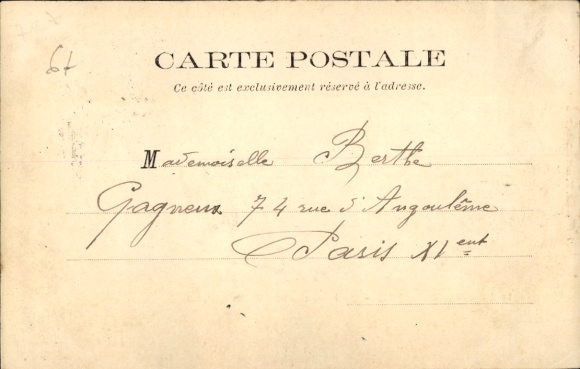 6t
CARTE POSTALE
Ce côté est exclusivement réservé à l'adresse.
Mademoiselle Berthe
Gagneux 74 rue d'Angoulême
Paris XI ent